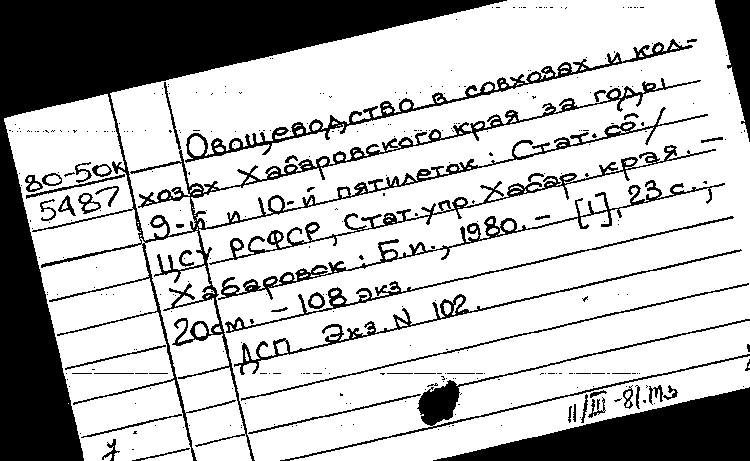 80-50к
5487
Овощеводство в совхозах и кол-
хозах Хабаровского края за годы
9-й и 10-й пятилеток : Стат. сб. /
ЦСУ РСФСР, Стат. упр. Хабар. края. –
Хабаровск : Б.и., 1980. – [1], 23 с. ;
20 см. – 108 экз.
ДСП. Экз. N 102.
11/III -81.